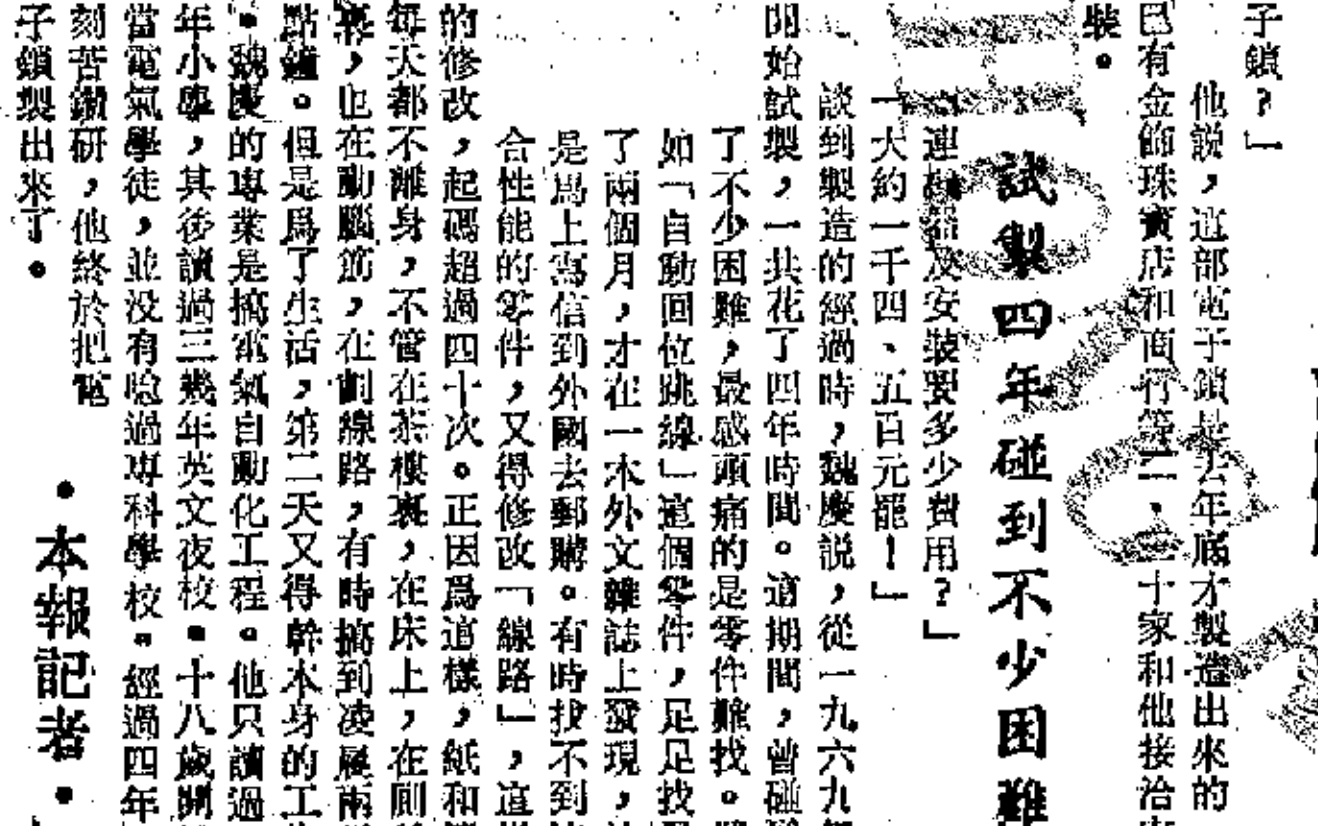 子鎖?」
他説，這部電子鎖是去年底才製造出來的
已有金飾珠寶店和商行等二、三十家和他接洽
裝。
試製四年碰到不少困難
「連 及安裝要多少費用?」
「大約一千四、五百元罷!」
談到製造的經過時，魏慶説，從一九六九
開始試製，一共花了四年時間。這期間，曾碰
了不少困難，最感頭痛的是零件難找。
如「自動回位跳線」這個零件，足足找
了兩個月，才在一本外文雜誌上發現，
是馬上寫信到外國去郵購。有時找不到
合性能的零件，又得修改「線路」，這
的修改，起碼超過四十次。正因爲這樣，紙和
每天都不離身，不管在茶樓裏，在床上，在厠
，也在動腦筋，在劃線路，有時搞到凌晨兩
點鐘。但是爲了生活，第二天又得幹本身的工
魏慶的專業是搞電氣自動化工程。他只讀過
年小學，其後讀過三幾年英文夜校。十八歲開
當電氣學徒，並没有唸過專科學校。經過四年
刻苦鑽研，他終於把電
子鎖製出來了。
·本報記者·